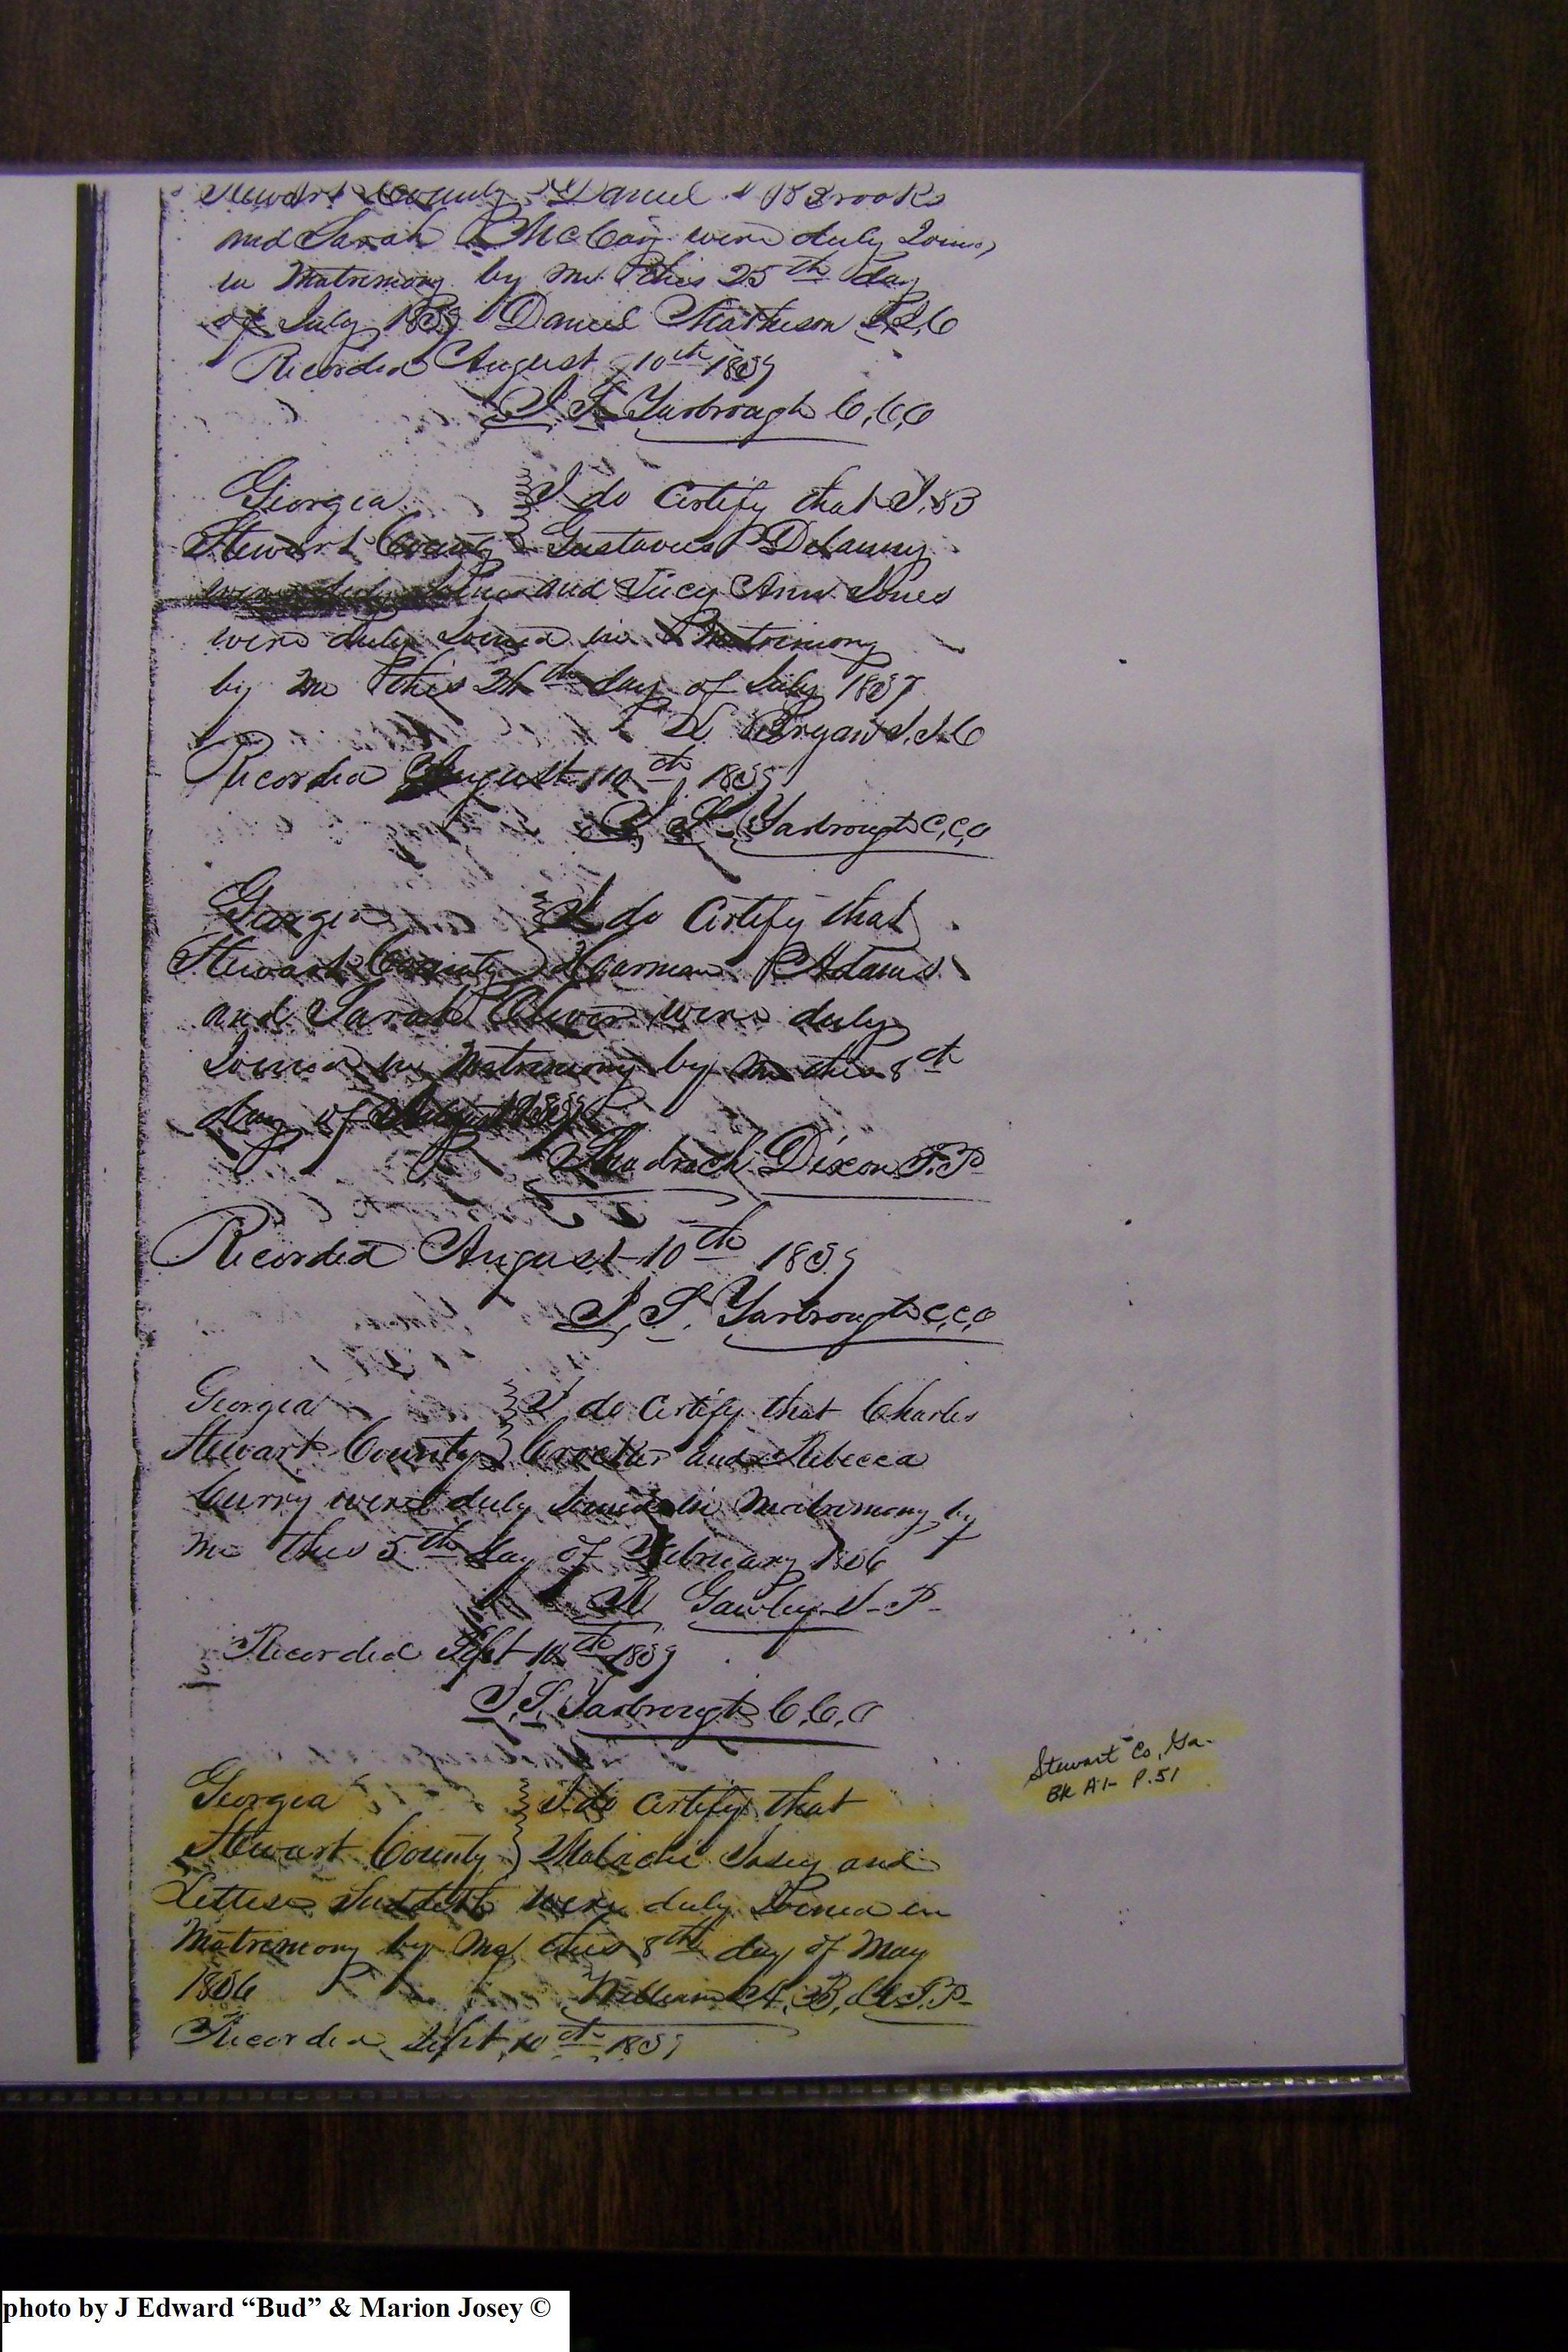 Stewart County Daniel Brooks
and Sarah McCay were duly Joined
in Matrimony by me this 25th day
of July 1839 Daniel Matheson J.I.C
Recorded August 10th 1839
J. S. Yarbrough C.C.O
Georgia I do Certify that J. B
Stewart County Gustavus Delauny
and Lucy Ann Jones
were duly Joined in Matrimony
by me this day of July 1837
Bryan J.I.C
Recorded August 10th 1839
J. S. Yarbrough C.C.O
Georgia I do Certify that
Stewart County Harman Adams
and Sarah Oliver were duly
Joined in Matrimony by me this 8th
day of
Shadrach Dixon J.P
Recorded August 10th 1839
J. S. Yarbrough C.C.O
Georgia I do Certify that Charles
Stewart County Crocker and Rebecca
Curry were duly Joined in Matrimony by
me this 5th day of February 1836
Gawley J-P-
Recorded Sept 10th 1839
J. S. Yarbrough C.C.O
Stewart Co, Ga.
Bk A1- P.51
Georgia I do Certify that
Stewart County Malachi Josey and
were duly Joined in
Matrimony by me this 8th day of May
1836 William J.P-
Recorded Sept 10th 1839
photo by J Edward “Bud” & Marion Josey ©